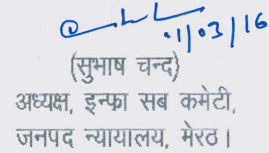 01/03/16
(सुभाष चन्द)
अध्यक्ष, इन्फा सब कमेटी,
जनपद न्यायालय, मेरठ।